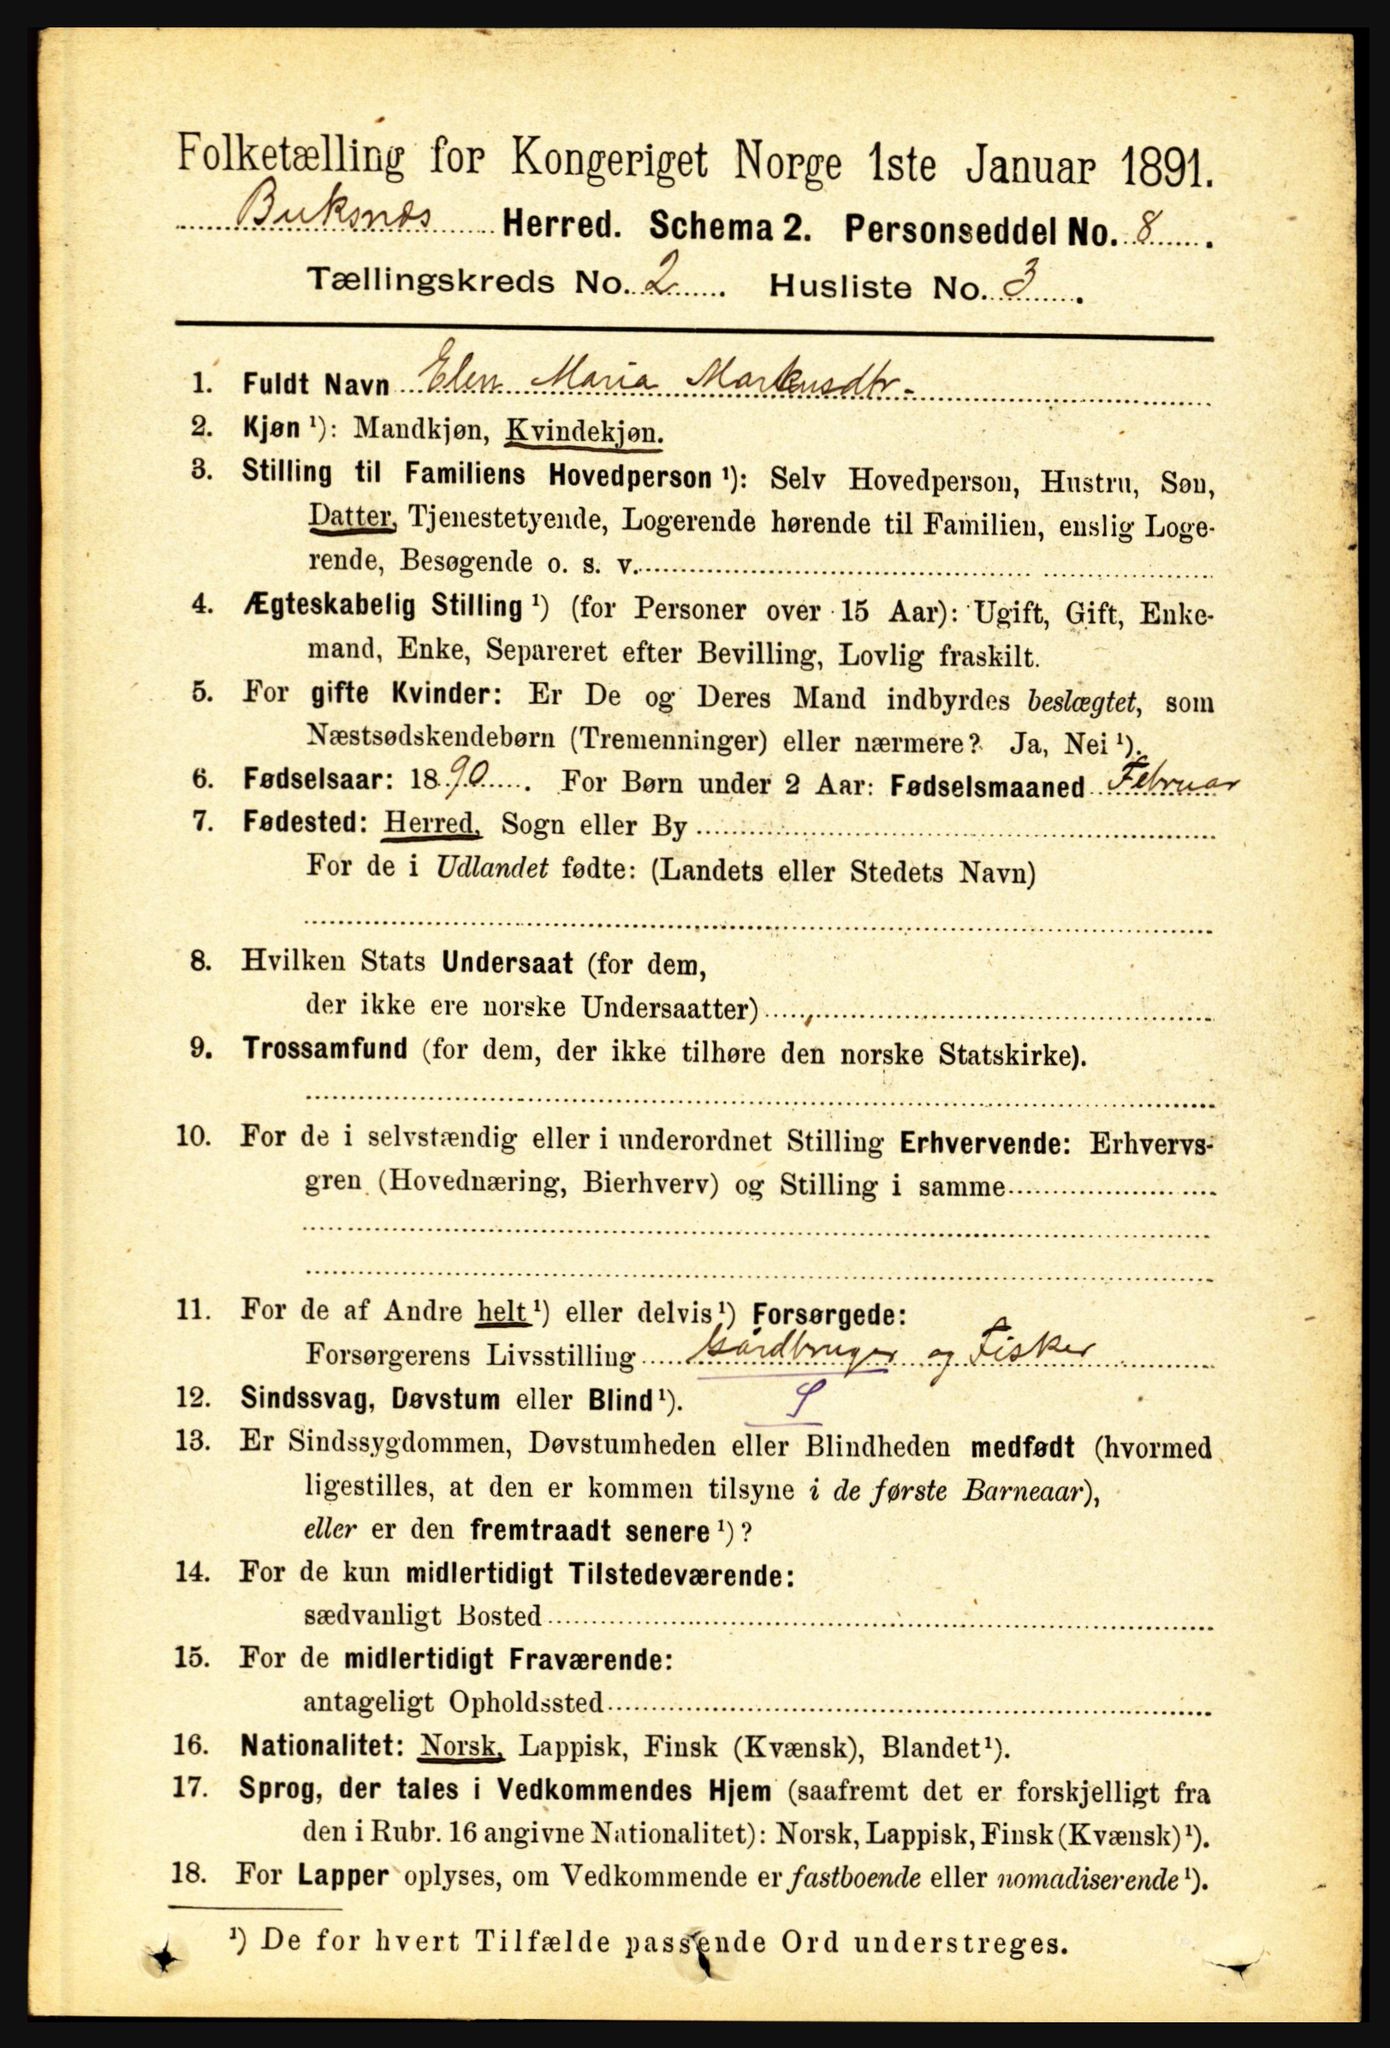 Folketælling for Kongeriget Norge 1ste Januar 1891.
Buksnæs Herred. Schema 2. Personseddel No. 8.
Tællingskreds No. 2. Husliste No. 3.
1. Fuldt Navn Elen Maria Markusdtr.
2. Kjøn ¹): Mandkjøn, Kvindekjøn.
3. Stilling til Familiens Hovedperson ¹): Selv Hovedperson, Hustru, Søn,
Datter, Tjenestetyende, Logerende hørende til Familien, enslig Loge-
rende, Besøgende o. s. v.
4. Ægteskabelig Stilling ¹) (for Personer over 15 Aar): Ugift, Gift, Enke-
mand, Enke, Separeret efter Bevilling, Lovlig fraskilt.
5. For gifte Kvinder: Er De og Deres Mand indbyrdes beslægtet, som
Næstsødskendebørn (Tremenninger) eller nærmere? Ja, Nei ¹).
6. Fødselsaar: 1890. For Børn under 2 Aar: Fødselsmaaned Februar
7. Fødested: Herred, Sogn eller By
For de i Udlandet fødte: (Landets eller Stedets Navn)
8. Hvilken Stats Undersaat (for dem,
der ikke ere norske Undersaatter)
9. Trossamfund (for dem, der ikke tilhøre den norske Statskirke).
10. For de i selvstændig eller i underordnet Stilling Erhvervende: Erhvervs-
gren (Hovednæring, Bierhverv) og Stilling i samme
11. For de af Andre helt ¹) eller delvis ¹) Forsørgede:
Forsørgerens Livsstilling Gårdbruger og Fisker
12. Sindssvag, Døvstum eller Blind ¹). S
13. Er Sindssygdommen, Døvstumheden eller Blindheden medfødt (hvormed
ligestilles, at den er kommen tilsyne i de første Barneaar),
eller er den fremtraadt senere ¹)?
14. For de kun midlertidigt Tilstedeværende:
sædvanligt Bosted
15. For de midlertidigt Fraværende:
antageligt Opholdssted
16. Nationalitet: Norsk, Lappisk, Finsk (Kvænsk), Blandet ¹).
17. Sprog, der tales i Vedkommendes Hjem (saafremt det er forskjelligt fra
den i Rubr. 16 angivne Nationalitet): Norsk, Lappisk, Finsk (Kvænsk) ¹).
18. For Lapper oplyses, om Vedkommende er fastboende eller nomadiserende ¹).
¹) De for hvert Tilfælde passende Ord understreges.